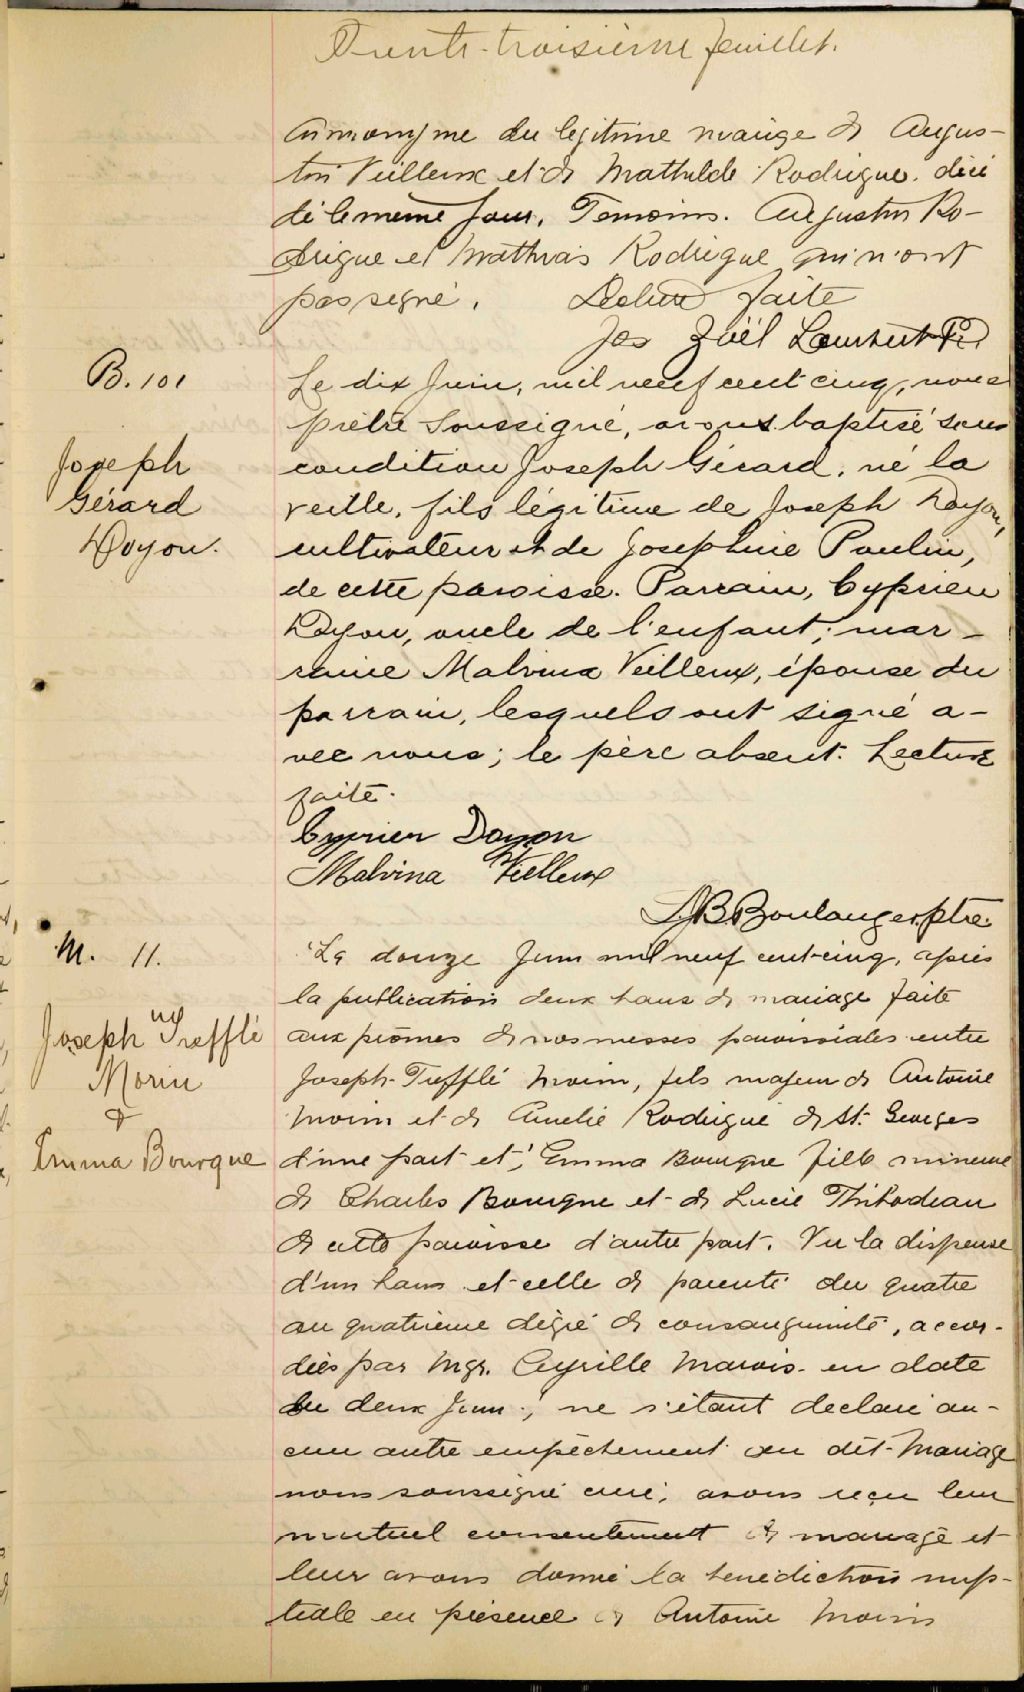 Trente-troisième feuillet.
Annonyme du legitime mariage de Augus-
tin Veilleux et de Mathilde Rodrigue. décé
dé le même jour. Temoins. Augustin Ro-
drigue et Mathias Rodrigue qui n'ont
pas signé. Lecture faite
Jos Zoël Lambert Ptre
B. 101
Joseph
Gérard
Doyon.
Le dix Juin, mil neuf cent cinq, nous
prêtre soussigné, avons baptisé sous
condition Joseph Gérard, né la
veille, fils légitime de Joseph Doyon,
cultivateur et de Josephine Poulin,
de cette paroisse. Parrain, Cyprien
Doyon, oncle de l'enfant; mar-
raine Malvina Veilleux, épouse du
parrain, lesquels ont signé a-
vec nous; le père absent. Lecture
faite.
Cyprien Doyon
Malvina Veilleux
J.B. Boulanger, ptre.
M. 11.
Joseph Trefflé
Morin
&
Emma Bourque
Le douze Juin mil neuf cent-cinq, après
la publication deux bans de mariage faite
aux prônes de nos messes paroissiales entre
Joseph-Trefflé Morin, fils majeur de Antoine
Morin et de Amelie Rodrigue de St. Georges
d'une part et, Emma Bourque fille mineure
de Charles Bourque et de Lucie Thibodeau
de cette paroisse d'autre part. Vu la dispense
d'un bans et celle de parenté du quatre
au quatrième dégré de consanguinité, accor-
dées par Mgr. Cyrille Marois en date
du deux Juin; ne s'étant declaré au-
cun autre empêchement au dit-Mariage
nous soussigné curé, avons reçu leur
mutuel consentement de mariage et
leur avons donné la benediction nup-
tiale en présence de Antoine Morin